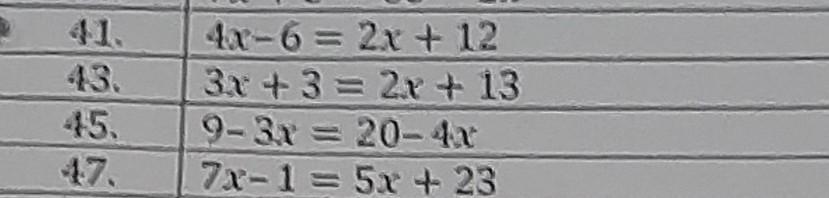 41. 4x-6 = 2x + 12
43. 3x + 3 = 2x + 13
45. 9-3x = 20-4x
47. 7x-1 = 5x + 23